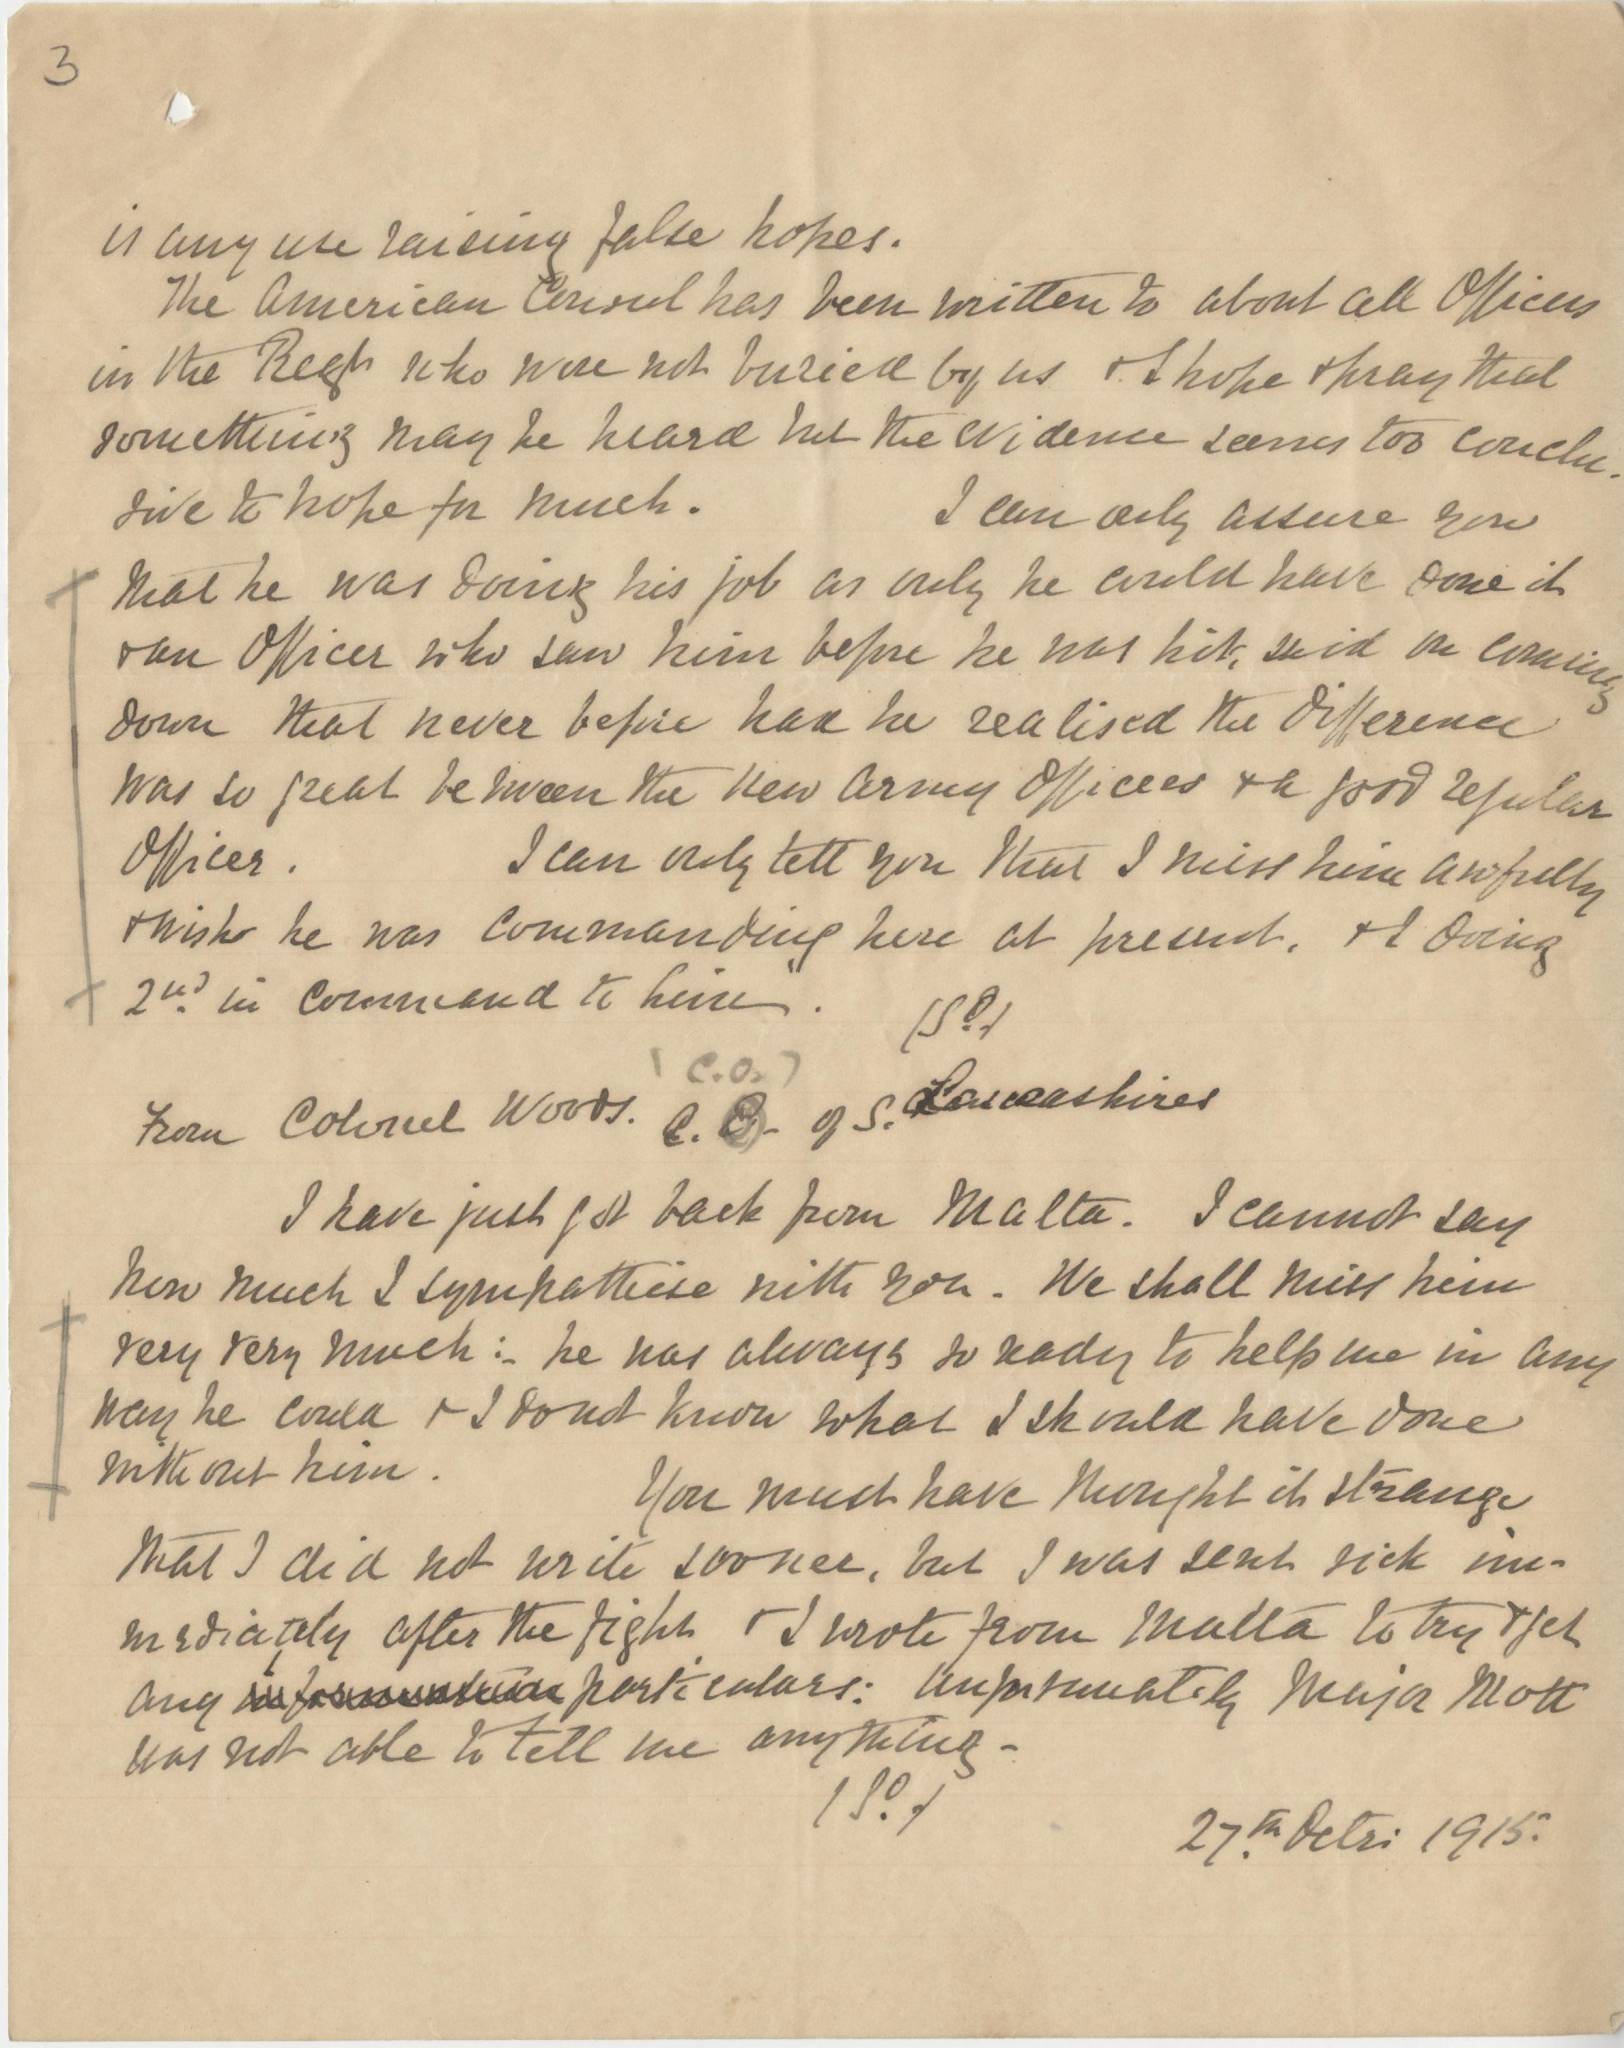 3
is any use raising false hopes.
The American Consul has been written to about all Officers
in the Regt who were not buried by us & I hope & pray that
something may be heard but the evidence seems too conclu-
sive to hope for much. I can only assure you
that he was doing his job as only he could have done it
& an Officer who saw him before he was hit, said on coming
down that never before had he realised the difference
was so great between the New Army Officers & a good regular
Officer. I can only tell you that I miss him awfully
& wish he was commanding here at present, & I doing
2nd in command to him".
(Sd.)
(C.O.)
From Colonel Woods. C.O. of S. Lancashires
I have just got back from Malta. I cannot say
how much I sympathise with you. We shall miss him
very very much :- he was always so ready to help me in any
way he could & I do not know what I should have done
without him. You must have thought it strange
that I did not write sooner, but I was sent sick im-
mediately after the fight & I wrote from Malta to try & get
any information particulars: unfortunately Major Mott
was not able to tell me anything -
(Sd.)
27th Octr: 1915.